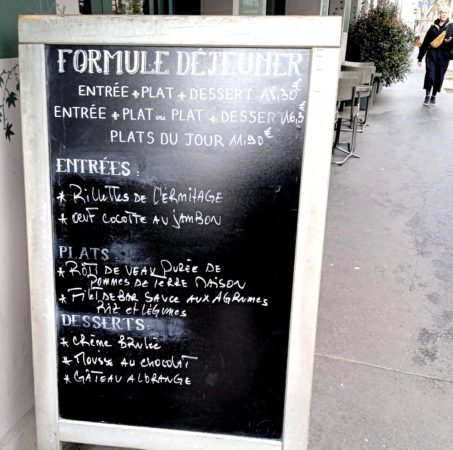 FORMULE DÉJEUNER
ENTRÉE + PLAT + DESSERT 18,30€
ENTRÉE + PLAT OU PLAT + DESSERT 16,3
PLATS DU JOUR 11.90€
ENTRÉES :
* RILLETTES DE L'ERMITAGE
* ŒUF COCOTTE AU JAMBON
PLATS
* RÔTI DE VEAU PURÉE DE
POMMES DE TERRE MAISON
* FILET DE BAR SAUCE AUX AGRUMES
RIZ ET LÉGUMES
DESSERTS:
* CRÈME BRULÉE
* MOUSSE AU CHOCOLAT
* GÂTEAU A L'ORANGE